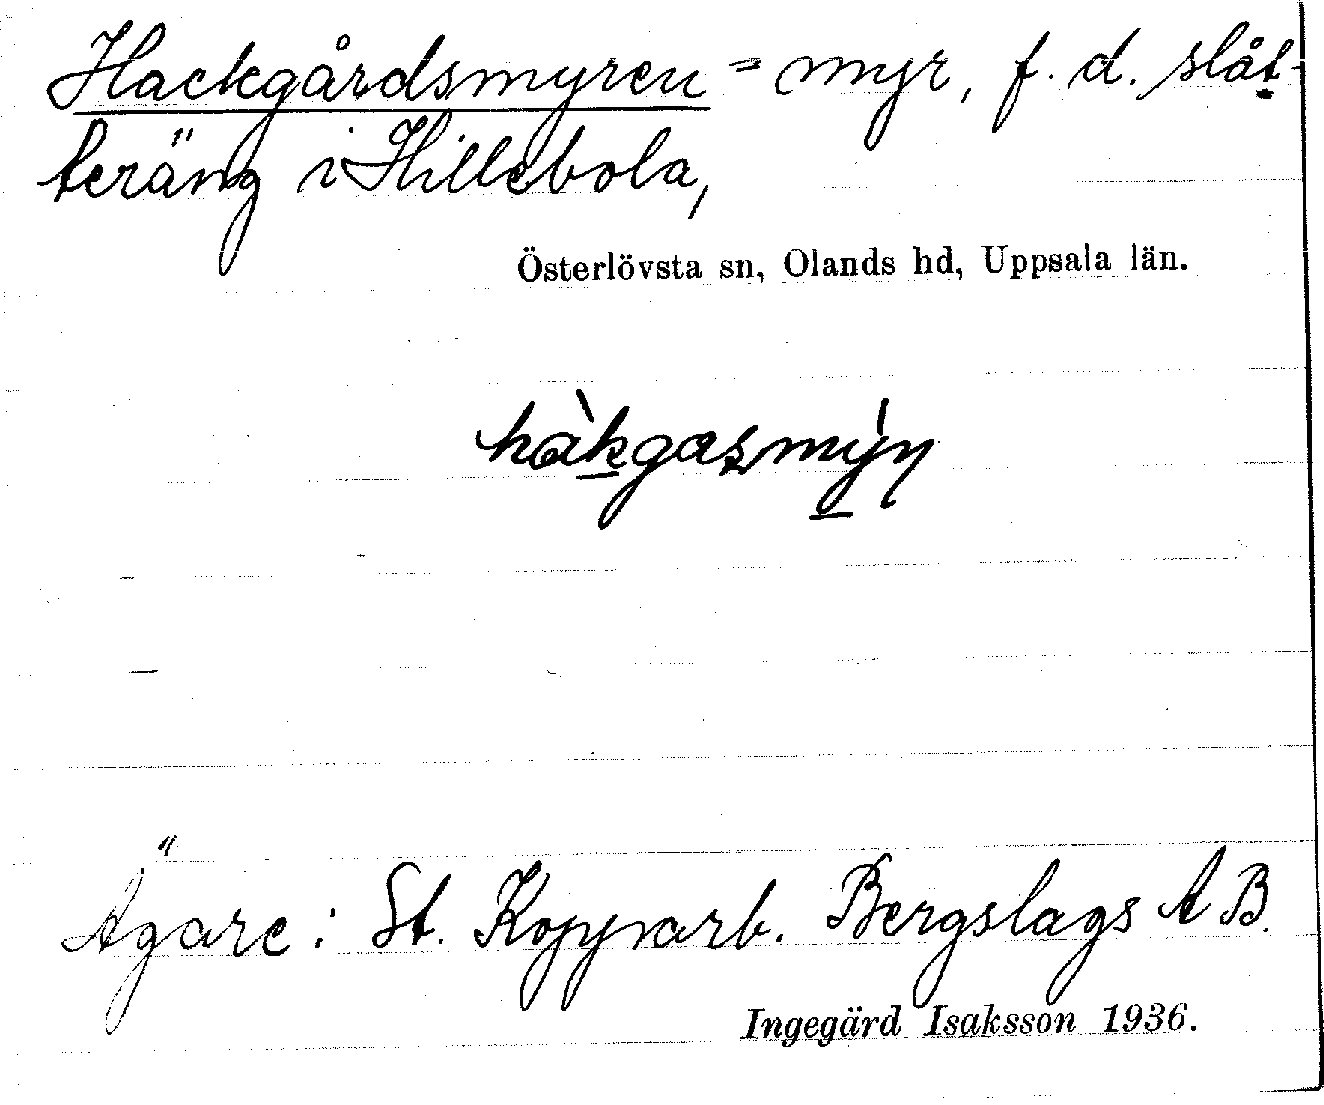 Hackgårdsmyren = myr, f. d. slåt-
teräng i Hillebola,
Österlövsta sn, Olands hd, Uppsala län.
Ägare: St. Kopparb. Bergslags AB.
Ingegärd Isaksson 1936.